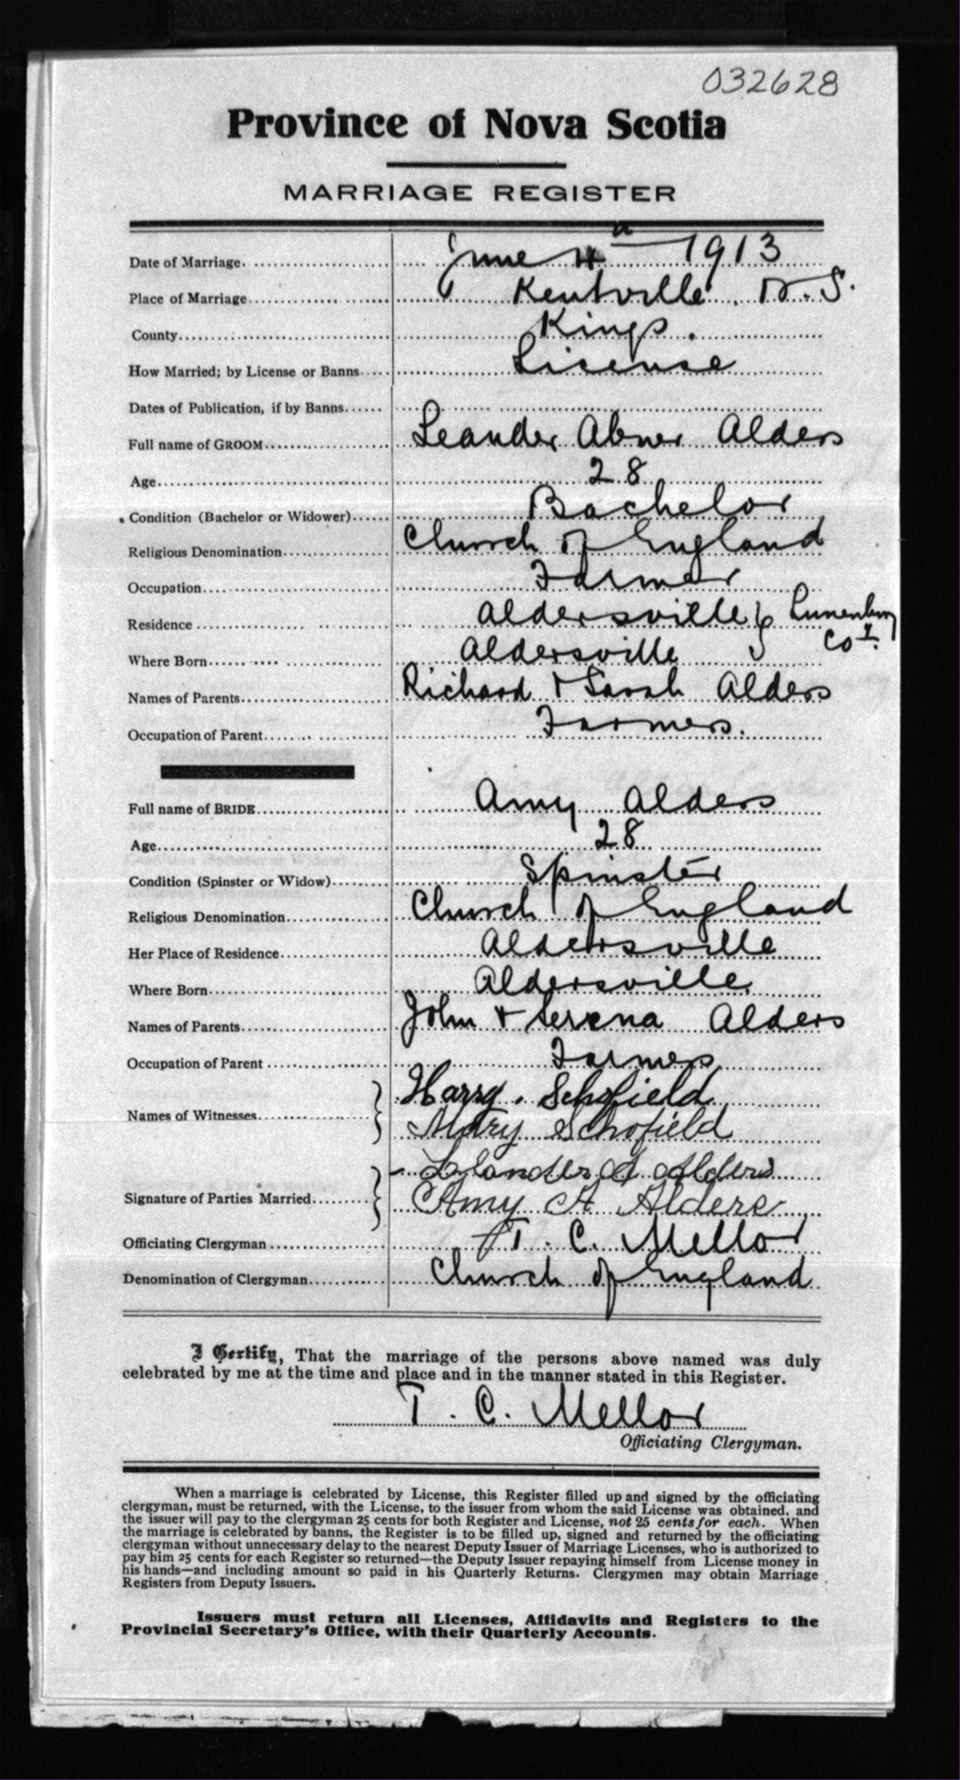 032628
Province of Nova Scotia
MARRIAGE REGISTER
Date of Marriage June 4th 1913
Place of Marriage Kentville. N.S.
County Kings.
How Married; by License or Banns License
Dates of Publication, if by Banns
Full name of GROOM Leander Abner Alders
Age 28
Condition (Bachelor or Widower) Bachelor
Religious Denomination Church of England
Occupation Farmer
Residence Aldersville } Lunenburg
Co y.
Where Born Aldersville
Names of Parents Richard & Sarah Alders
Occupation of Parent Farmers.
Full name of BRIDE Amy Alders
Age 28
Condition (Spinster or Widow) Spinster
Religious Denomination Church of England
Her Place of Residence Aldersville
Where Born Aldersville
Names of Parents John & Serena Alders
Occupation of Parent Farmers
Names of Witnesses Harry. Schofield
Mary Schofield
Signature of Parties Married Leander A Alders
Amy A Alders
Officiating Clergyman T. C. Mellor
Denomination of Clergyman Church of England
I Certify, That the marriage of the persons above named was duly
celebrated by me at the time and place and in the manner stated in this Register.
T. C. Mellor
Officiating Clergyman.
When a marriage is celebrated by License, this Register filled up and signed by the officiating
clergyman, must be returned, with the License, to the issuer from whom the said License was obtained, and
the issuer will pay to the clergyman 25 cents for both Register and License, not 25 cents for each. When
the marriage is celebrated by banns, the Register is to be filled up, signed and returned by the officiating
clergyman without unnecessary delay to the nearest Deputy Issuer of Marriage Licenses, who is authorized to
pay him 25 cents for each Register so returned—the Deputy Issuer repaying himself from License money in
his hands—and including amount so paid in his Quarterly Returns. Clergymen may obtain Marriage
Registers from Deputy Issuers.
Issuers must return all Licenses, Affidavits and Registers to the
Provincial Secretary's Office, with their Quarterly Accounts.